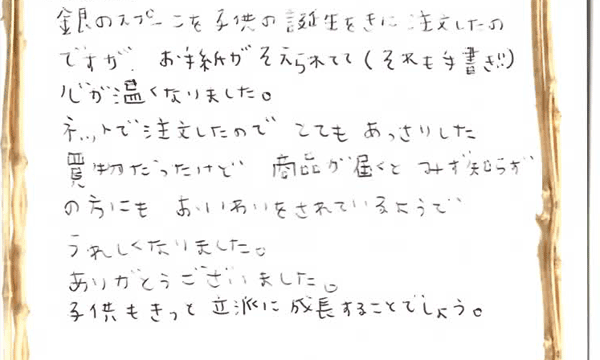 銀のスプーンを子供の誕生をきに注文したの
ですが、お手紙がそえられてて(それも手書き!!)
心が温くなりました。
ネットで注文したので とても あっさりした
買物だったけど 商品が届くと みず知らず
の方にも おいわいをされているようで
うれしくなりました。
ありがとうございました。
子供もきっと 立派に 成長することでしょう。